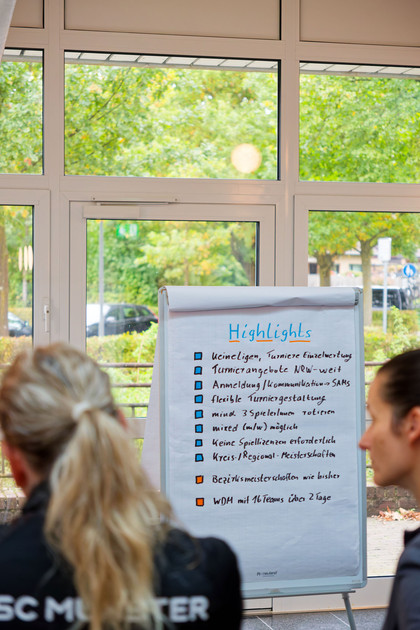 Highlights
keine Ligen, Turniere Einzelwertung
Turnierangebote NRW-weit
Anmeldung/Kommunikation SAMS
flexible Turniergestaltung
mind. 3 SpielerInnen rotieren
mixed (m/w) möglich
Keine Spiellizenzen erforderlich
Kreis-/Regional-Meisterschaften
Bezirksmeisterschaften wie bisher
WDM mit 16 Teams über 2 Tage
SC M STER